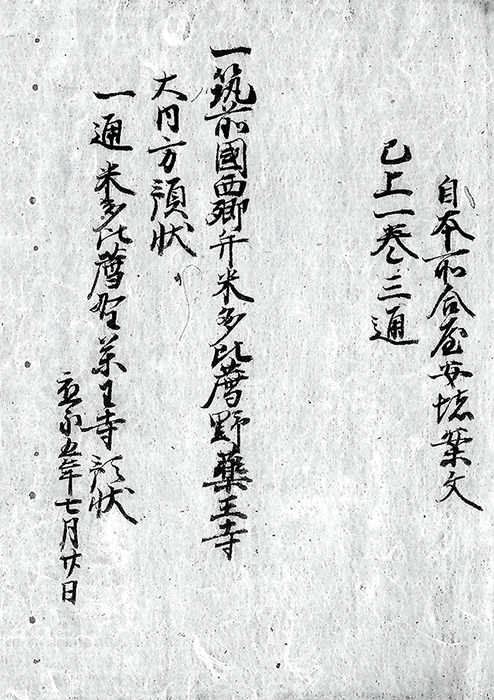 自本所合屋安堵案文
已上一巻三通
一筑前國西郷幷米多比薦野薬王寺
大内方預状
一通 米多比薦野薬王寺預状
応永五年七月廿日